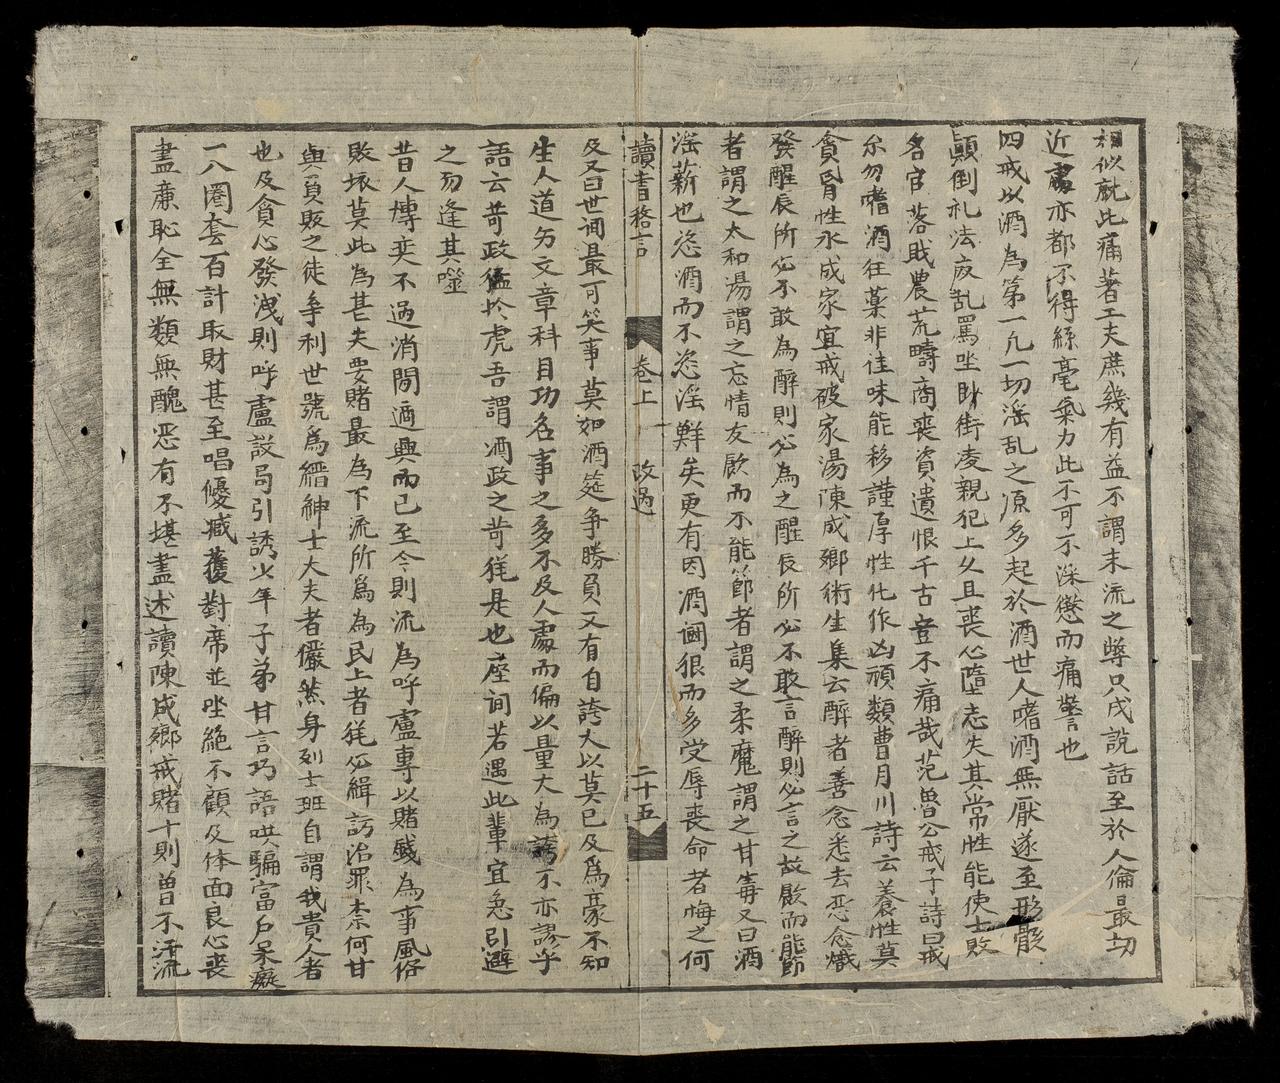 相似就此痛著工夫庶幾有益不謂末流之弊只成說話至於人倫最切
近處亦都不得絲毫氣力此不可不深懲而痛警也
四戒以酒為第一凡一切淫乱之原多起於酒世人嗜酒無厭遂至形骸
顛倒礼法廢乱罵坐臥街凌親犯上女且喪心隳志失其常性能使士敗
名官落戝農荒疇商喪資遺恨千古豈不痛哉范魯公戒子詩曰戒
尒勿嗜酒狂薬非佳味能移謹厚性化作凶頑類曹月川詩云養性莫
貪昏性水成家宜戒破家湯陳成鄉術生集云醉者善念悉去恶念熾
發醒辰所必不敢為醉則必為之醒辰所必不敢言醉則必言之故歐而能節
者謂之太和湯謂之忘情友歐而不能節者謂之柔魔謂之甘毒又曰酒
淫薪也恣酒而不恣淫鮮矣更有因酒鬪狠而多受辱喪命者悔之何
讀書格言 卷上 改過 二十五
及又曰世间最可笑事莫如酒筵争勝負又有自誇大以莫已及爲豪不知
生人道穷文章科目功名事之多不及人處而偏以量大為誇不亦謬乎
語云苛政猛於虎吾謂酒政之苛犹是也座间若遇此輩宜急引避
之勿逢其噬
昔人博奕不過消閒適興而已至今則流為呼盧專以賭戱為事風俗
敗坏莫此為甚夫耍賭最為下流所爲為民上者犹必緝訪治罪柰何甘
與負敗之徒争利世號爲縉紳士大夫者儼然身列士班自謂我貴人者
也及貪心發洩則呼盧設局引誘少年子弟甘言巧語哄騙富戶呆癡
一八圈套百計取財甚至唱優臧獲對席並坐絶不顧及体面良心喪
盡亷恥全無類無醜恶有不堪盡述讀陳成鄉戒賭十則曽不汗流